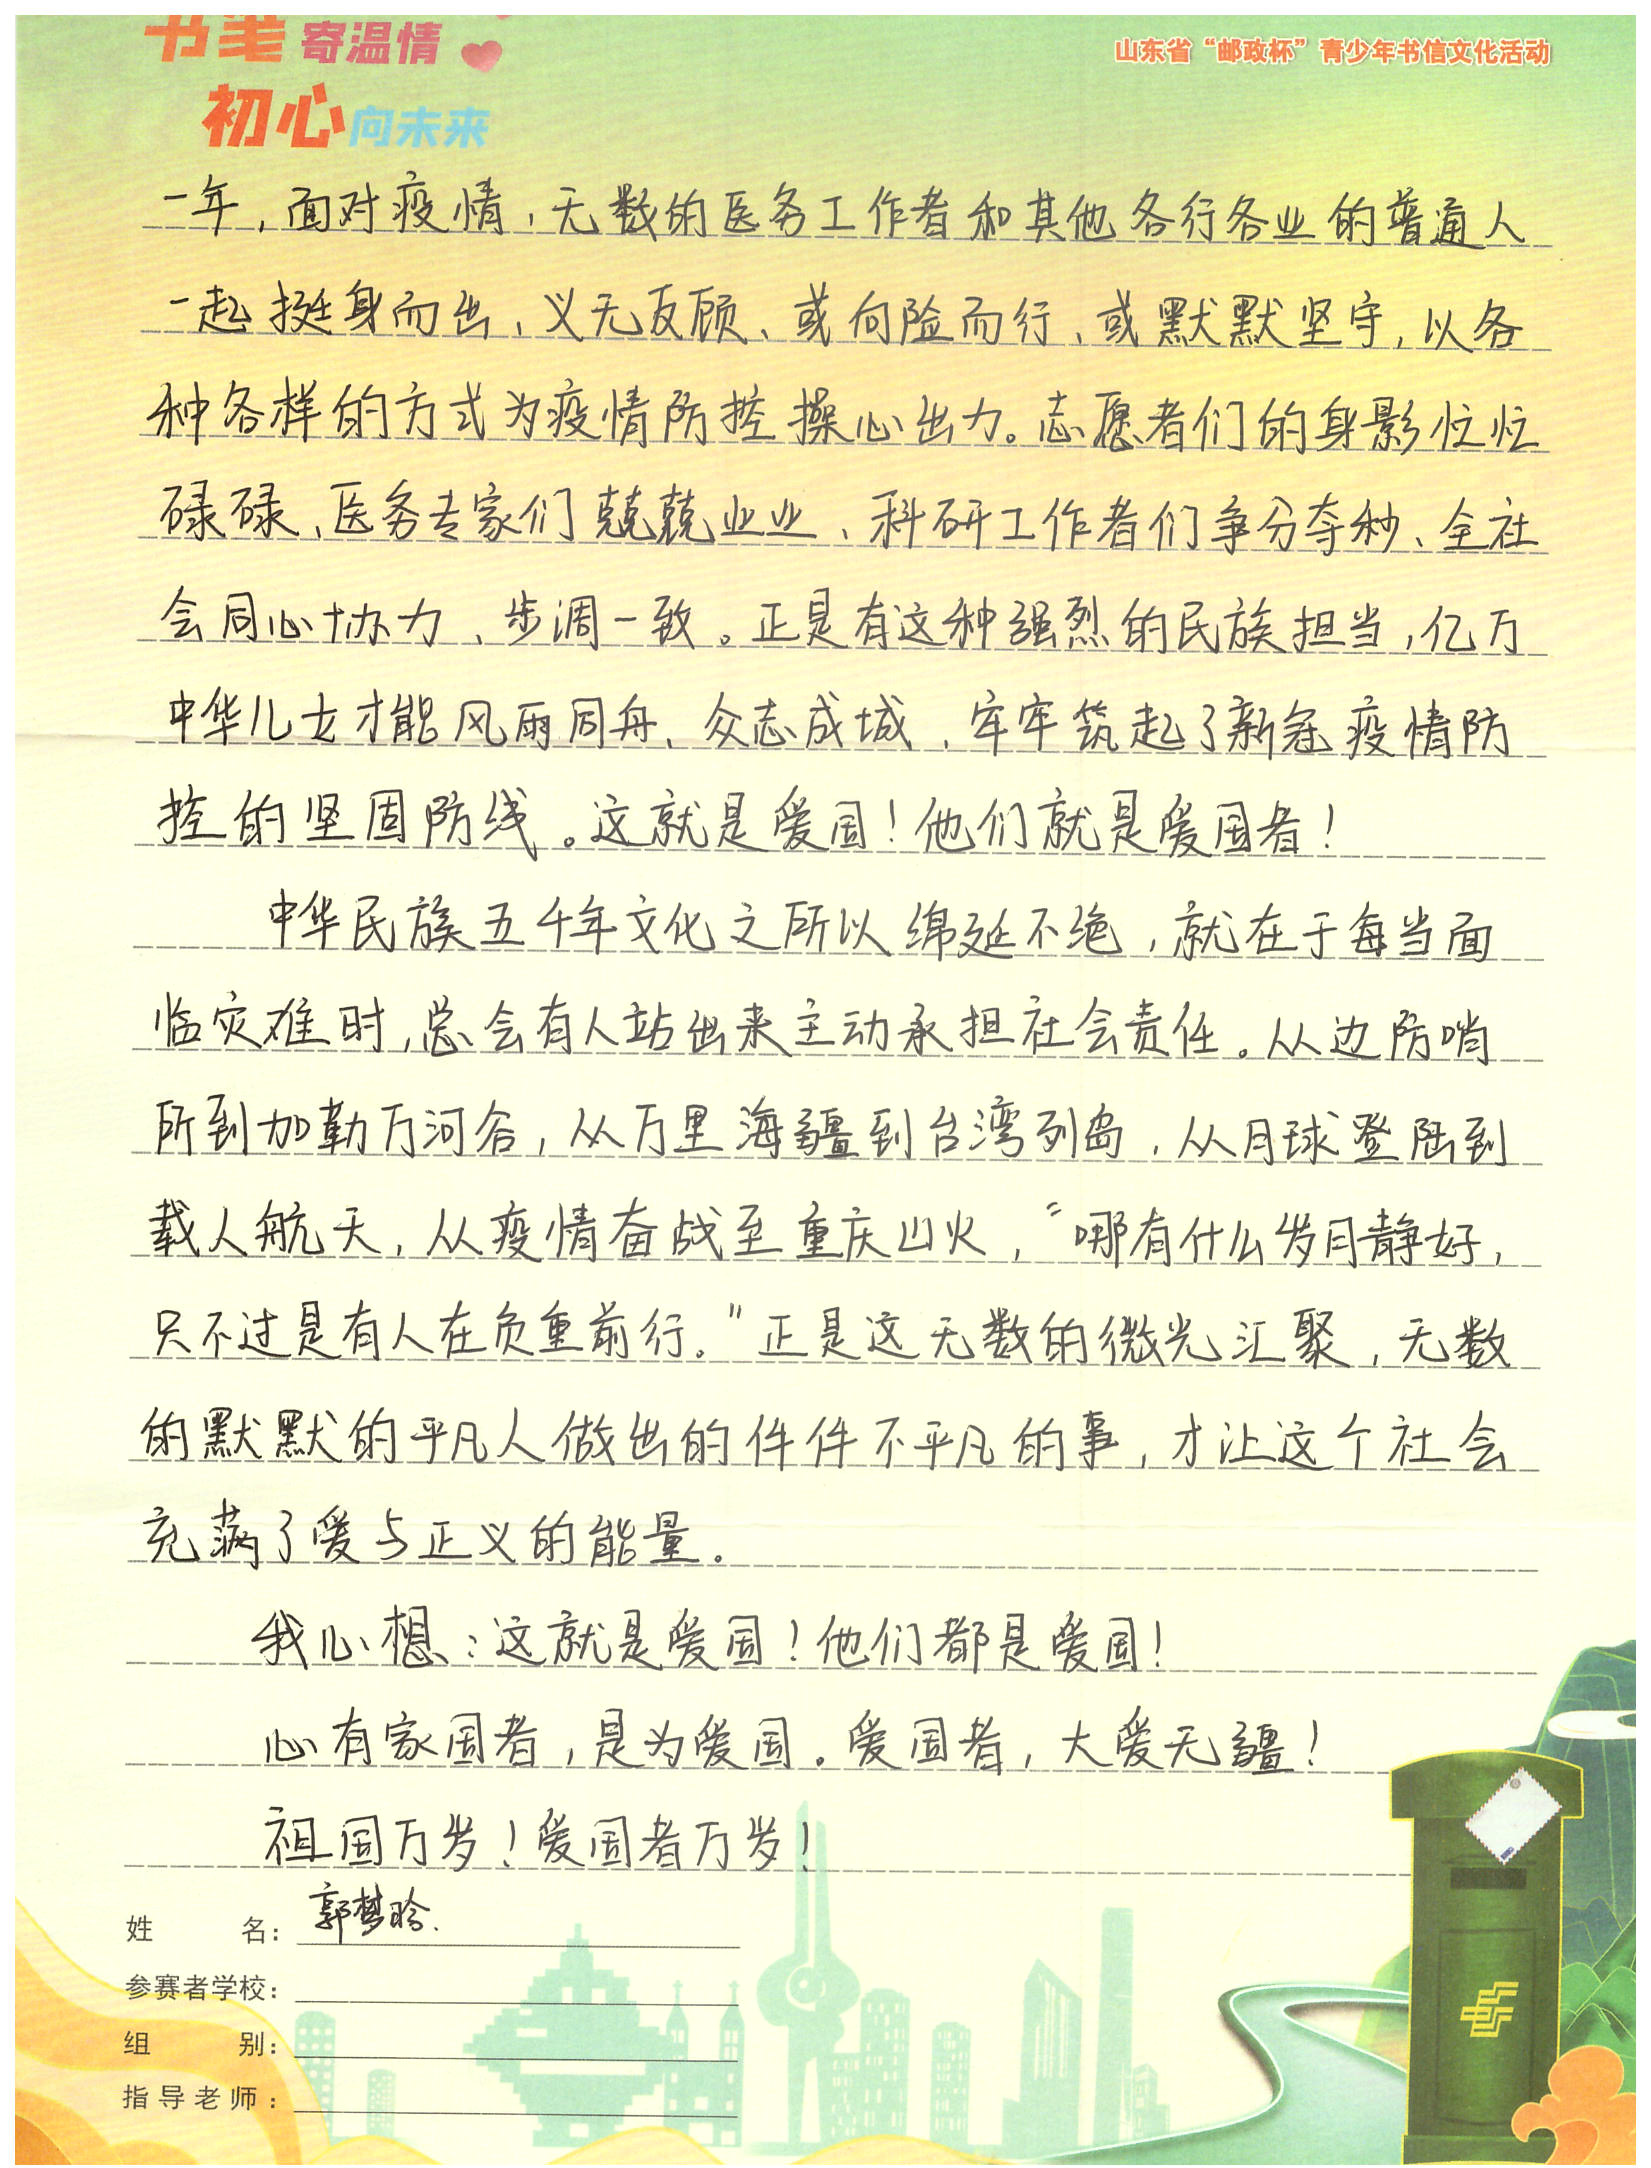 书笔寄温情
山东省“邮政杯”青少年书信文化活动
初心向未来
一年,面对疫情,无数的医务工作者和其他各行各业的普通人
一起挺身而出、义无反顾、或向险而行、或默默坚守,以各
种各样的方式为疫情防控操心出力。志愿者们的身影忙忙
碌碌、医务专家们兢兢业业、科研工作者们争分夺秒、全社
会同心协力、步调一致。正是有这种强烈的民族担当,亿万
中华儿女才能风雨同舟、众志成城、牢牢筑起了新冠疫情防
控的坚固防线。这就是爱国!他们就是爱国者!
中华民族五千年文化之所以绵延不绝,就在于每当面
临灾难时,总会有人站出来主动承担社会责任。从边防哨
所到加勒万河谷,从万里海疆到台湾列岛,从月球登陆到
载人航天,从疫情奋战至重庆山火,“哪有什么岁月静好,
只不过是有人在负重前行。”正是这无数的微光汇聚,无数
的默默的平凡人做出的件件不平凡的事,才让这个社会
充满了爱与正义的能量。
我心想:这就是爱国!他们都是爱国!
心有家国者,是为爱国。爱国者,大爱无疆!
祖国万岁!爱国者万岁!
姓 名: 郭梦晗.
参赛者学校:
组 别:
指导老师: